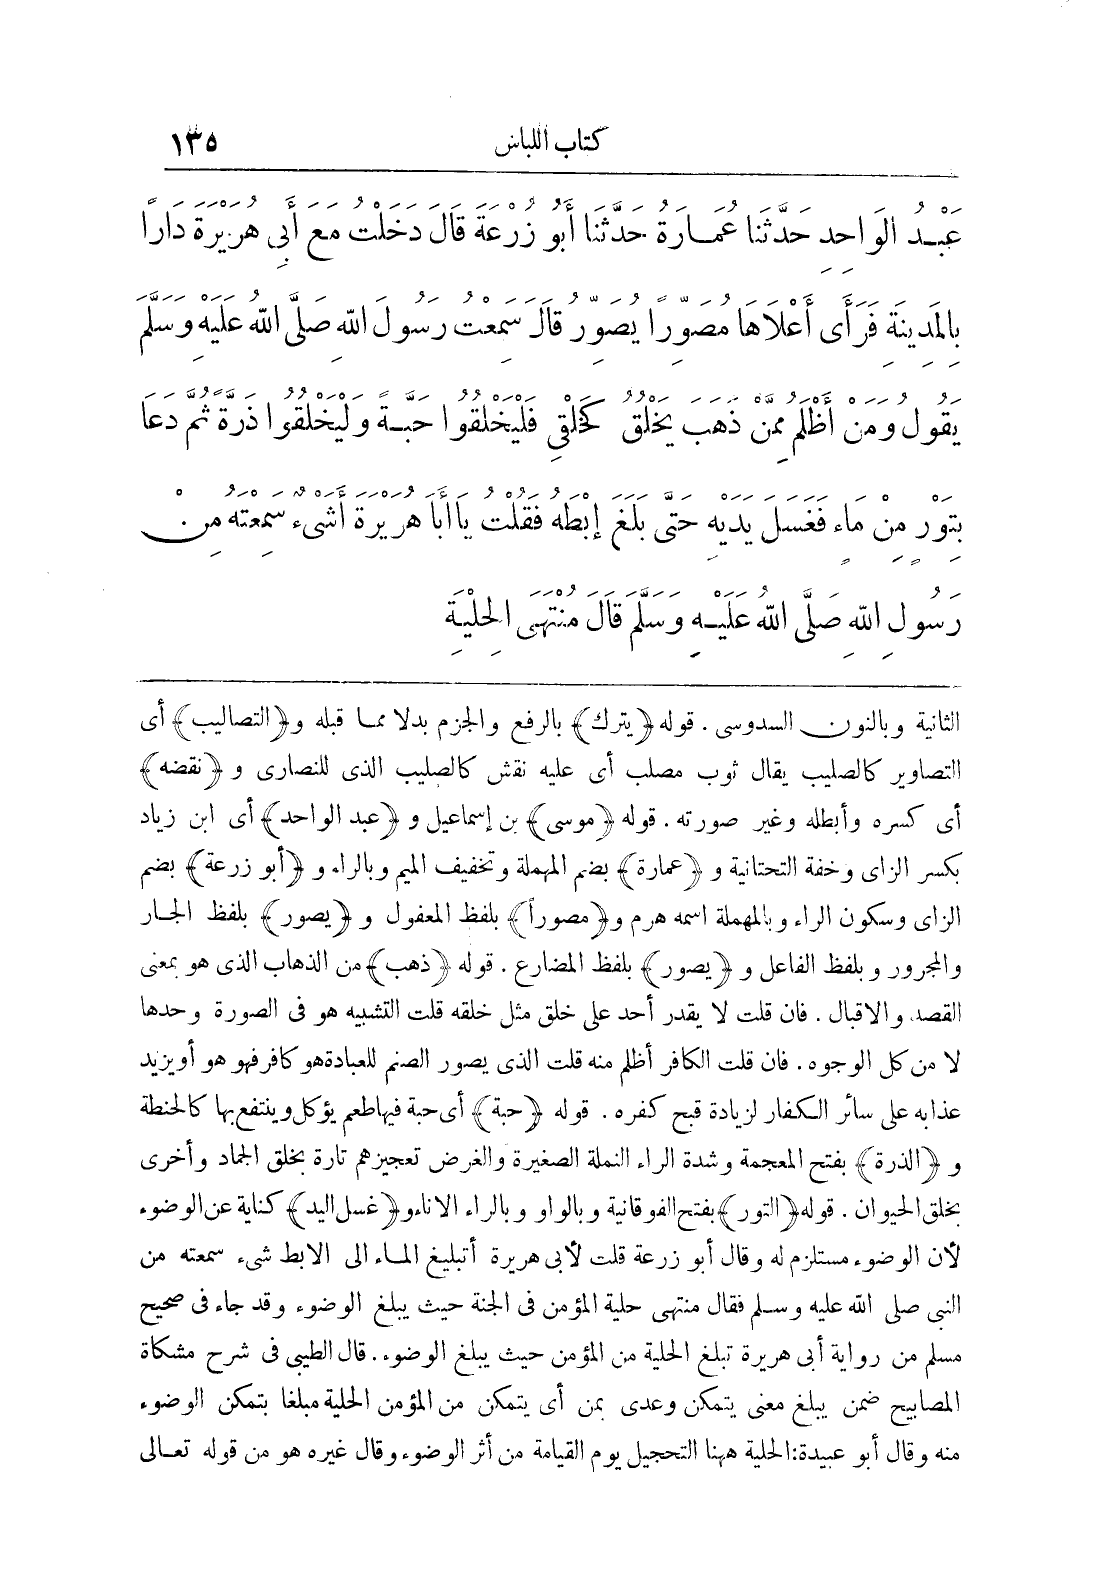 كتاب اللباس ١٣٥
عَبْدُ الوَاحِدِ حَدَّثَنَا عُمَارَةُ حَدَّثَنَا أَبُو زُرْعَةَ قَالَ دَخَلْتُ مَعَ أَبِي هُرَيْرَةَ دَارًا
بِالْمَدِينَةِ فَرَأَى أَعْلَاهَا مُصَوَّرًا يُصَوِّرُ قَالَ سَمِعْتُ رَسُولَ اللهِ صَلَّى اللهُ عَلَيْهِ وَسَلَّمَ
يَقُولُ وَمَنْ أَظْلَمُ مِمَّنْ ذَهَبَ يَخْلُقُ كَخَلْقِي فَلْيَخْلُقُوا حَبَّةً وَلْيَخْلُقُوا ذَرَّةً ثُمَّ دَعَا
بِتَوْرٍ مِنْ مَاءٍ فَغَسَلَ يَدَيْهِ حَتَّى بَلَغَ إِبْطَهُ فَقُلْتُ يَا أَبَا هُرَيْرَةَ أَشَيْءٌ سَمِعْتَهُ مِنْ
رَسُولِ اللهِ صَلَّى اللهُ عَلَيْهِ وَسَلَّمَ قَالَ مُنْتَهَى الْحِلْيَةِ
الثانية وبالنون السدوسى . قوله ﴿يترك﴾ بالرفع والجزم بدلا مما قبله و﴿التصاليب﴾ أى
التصاوير كالصليب يقال ثوب مصلب أى عليه نقش كالصليب الذى للنصارى و ﴿نقضه﴾
أى كسره وأبطله وغير صورته . قوله ﴿موسى﴾ بن إسماعيل و ﴿عبد الواحد﴾ أى ابن زياد
بكسر الزاى وخفة التحتانية و ﴿عمارة﴾ بضم المهملة وتخفيف الميم وبالراء و ﴿أبو زرعة﴾ بضم
الزاى وسكون الراء وبالمهملة اسمه هرم و﴿مصوراً﴾ بلفظ المعفول و ﴿يصور﴾ بلفظ الجار
والمجرور وبلفظ الفاعل و ﴿يصور﴾ بلفظ المضارع . قوله ﴿ذهب﴾ من الذهاب الذى هو بمعنى
القصد والاقبال . فان قلت لا يقدر أحد على خلق مثل خلقه قلت التشبيه هو فى الصورة وحدها
لا من كل الوجوه . فان قلت الكافر أظلم منه قلت الذى يصور الصنم للعبادة هو كافر فهو هو أو يزيد
عذابه على سائر الكفار لزيادة قبح كفره . قوله ﴿حبة﴾ أى حبة فيها طعم يؤكل وينتفع بها كالحنطة
و ﴿الذرة﴾ بفتح المعجمة وشدة الراء النملة الصغيرة والغرض تعجيزهم تارة بخلق الجماد وأخرى
بخلق الحيوان . قوله ﴿التور﴾ بفتح الفوقانية وبالواو وبالراء الاناء و﴿غسل اليد﴾ كناية عن الوضوء
لأن الوضوء مستلزم له وقال أبو زرعة قلت لأبى هريرة أتبليغ الماء الى الابط شىء سمعته من
النبى صلى الله عليه وسلم فقال منتهى حلية المؤمن فى الجنة حيث يبلغ الوضوء وقد جاء فى صحيح
مسلم من رواية أبى هريرة تبلغ الحلية من المؤمن حيث يبلغ الوضوء . قال الطيبى فى شرح مشكاة
المصابيح ضمن يبلغ معنى يتمكن وعدى بمن أى يتمكن من المؤمن الحلية مبلغا بتمكن الوضوء
منه وقال أبو عبيدة: الحلية ههنا التحجيل يوم القيامة من أثر الوضوء وقال غيره هو من قوله تعالى